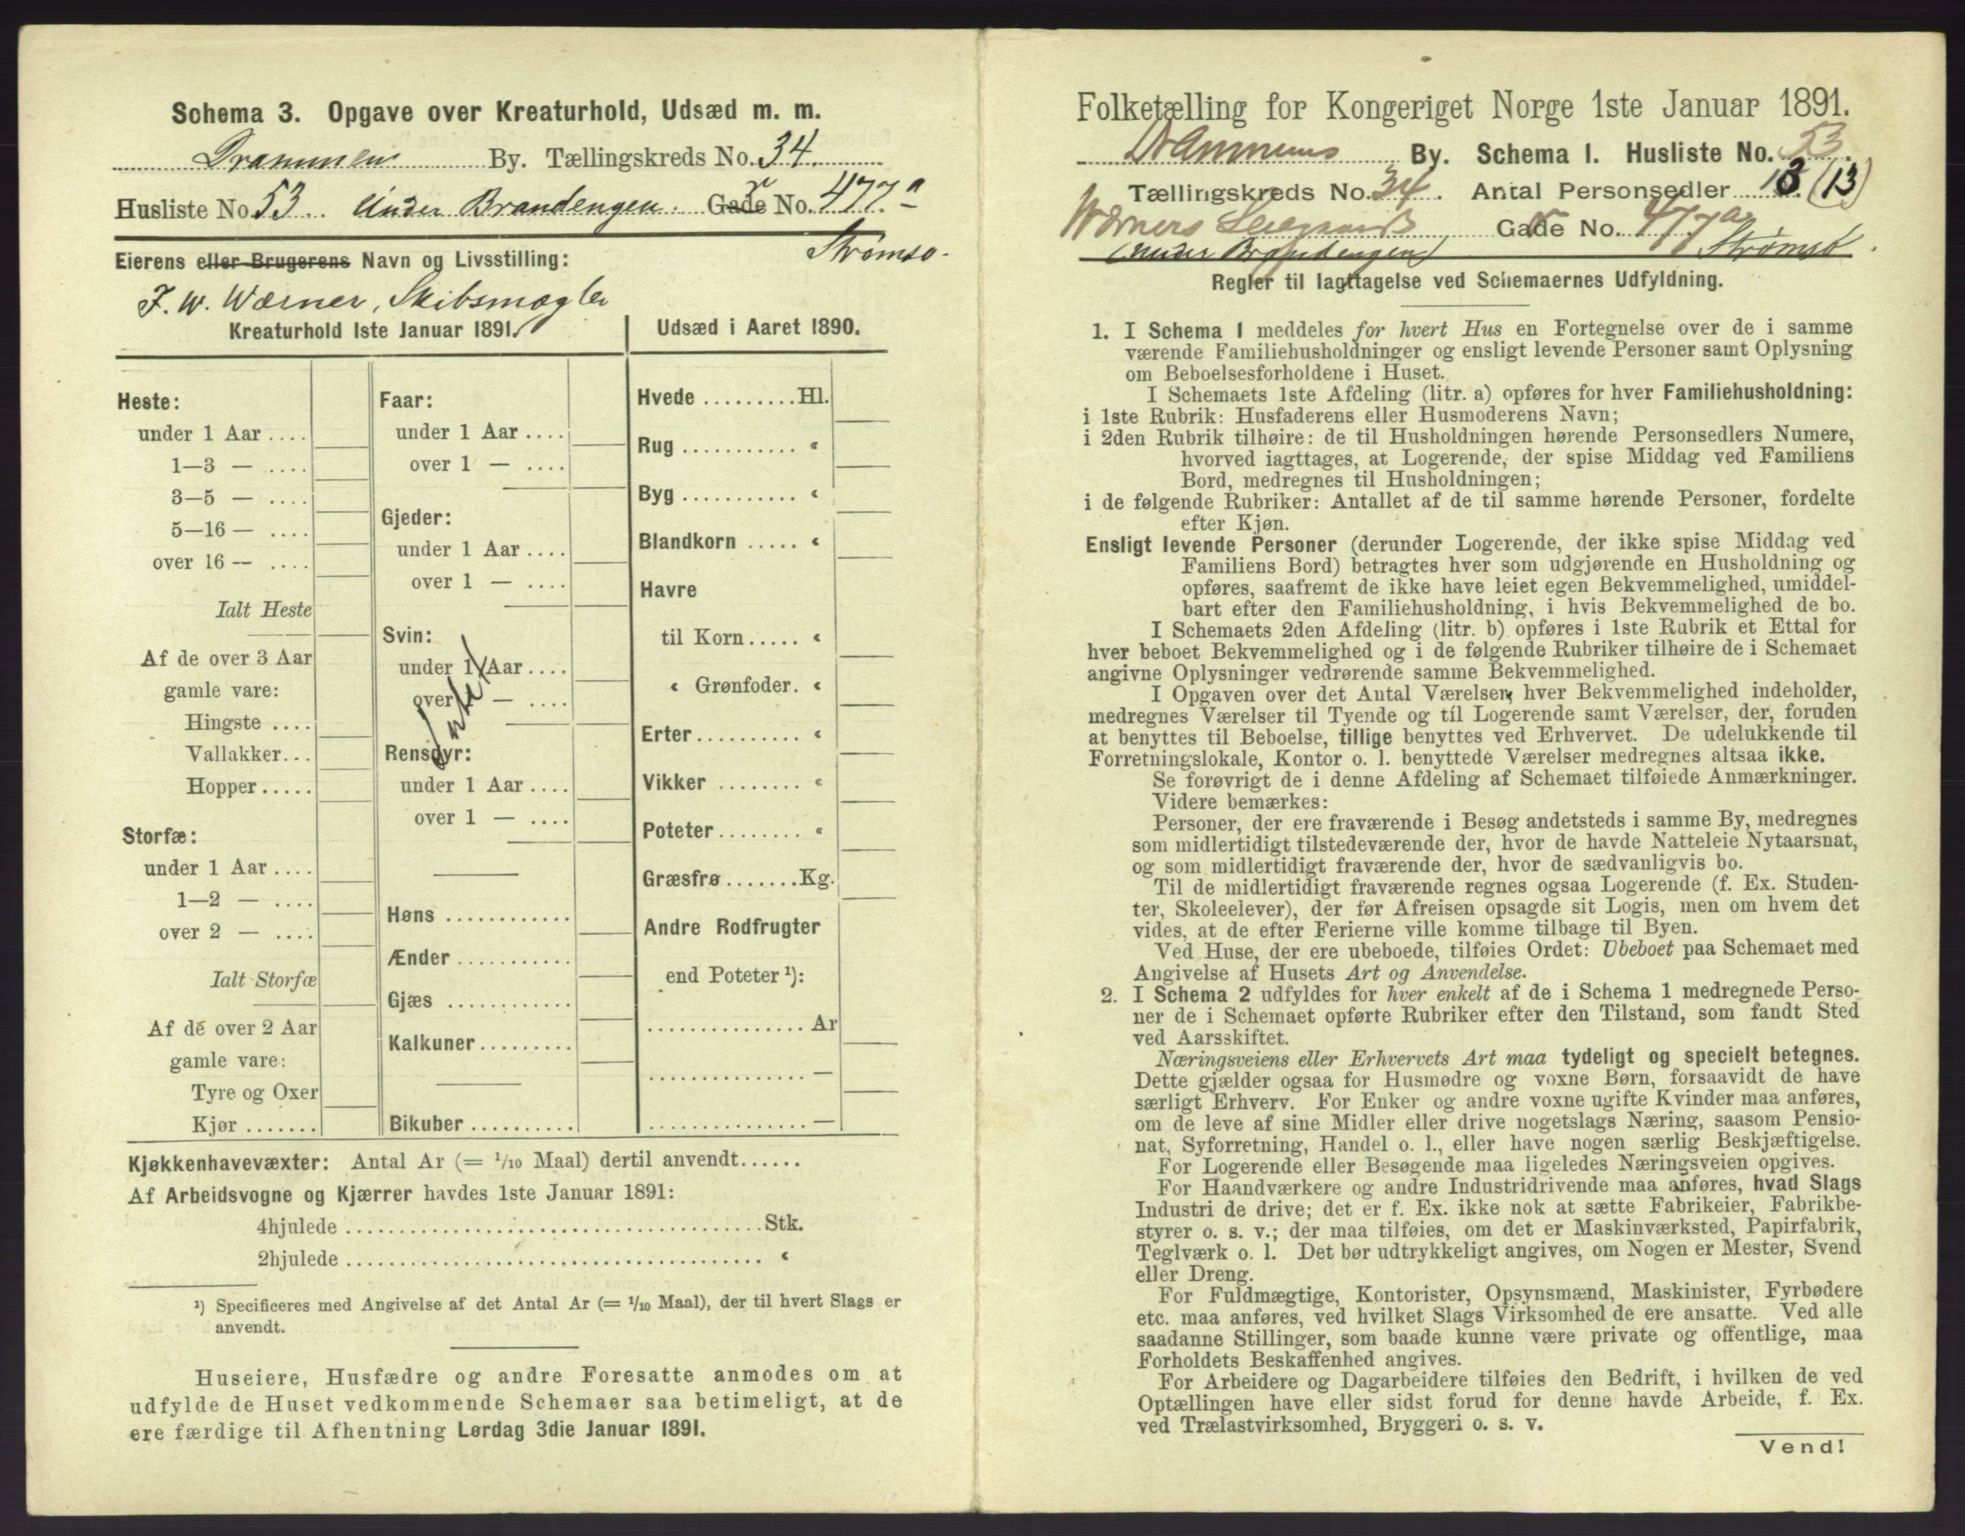 Schema 3. Opgave over Kreaturhold, Udsæd m. m.
Drammens By. Tællingskreds No. 34.
Husliste No. 53. Under Brandengen. Gade No. 477a
Strømsø.
Eierens eller Brugerens Navn og Livsstilling:
F. W. Wærner, Skibsmægler
Kreaturhold 1ste Januar 1891.
Heste:
under 1 Aar ....
1—3 — ....
3—5 — ....
5—16 — ....
over 16 — ....
Ialt Heste
Af de over 3 Aar
gamle vare:
Hingste ....
Vallakker...
Hopper.....
Storfæ:
under 1 Aar ....
1—2 — ....
over 2 — ....
Ialt Storfæ
Af de over 2 Aar
gamle vare:
Tyre og Oxer
Kjør .......
Faar:
under 1 Aar ....
over 1 — ....
Gjeder:
under 1 Aar ....
over 1 — ....
Svin:
under 1 Aar ....
over 1 — ....
Intet
Rensdyr:
under 1 Aar ....
over 1 — ....
Høns ............
Ænder ...........
Gjæs ............
Kalkuner.........
Bikuber ..........
Udsæd i Aaret 1890.
Hvede .........Hl.
Rug ........... «
Byg ........... «
Blandkorn ..... «
Havre
til Korn..... «
« Grønfoder. «
Erter.......... «
Vikker ........ «
Poteter........ «
Græsfrø .......Kg.
Andre Rodfrugter
end Poteter ¹):
............... Ar
............... —
............... —
Kjøkkenhavevæxter: Antal Ar (= 1/10 Maal) dertil anvendt......
Af Arbeidsvogne og Kjærrer havdes 1ste Januar 1891:
4hjulede ........................................Stk.
2hjulede ........................................ «
¹) Specificeres med Angivelse af det Antal Ar (= 1/10 Maal), der til hvert Slags er
anvendt.
Huseiere, Husfædre og andre Foresatte anmodes om at
udfylde de Huset vedkommende Schemaer saa betimeligt, at de
ere færdige til Afhentning Lørdag 3die Januar 1891.
Folketælling for Kongeriget Norge 1ste Januar 1891.
Drammens By. Schema 1. Husliste No. 53
Tællingskreds No. 34. Antal Personsedler 13 (13)
Wærners Gade No. 477a
(under Brandengen) Strømsø.
Regler til Iagttagelse ved Schemaernes Udfyldning.
1. I Schema 1 meddeles for hvert Hus en Fortegnelse over de i samme
værende Familiehusholdninger og ensligt levende Personer samt Oplysning
om Beboelsesforholdene i Huset.
I Schemaets 1ste Afdeling (litr. a) opføres for hver Familiehusholdning:
i 1ste Rubrik: Husfaderens eller Husmoderens Navn;
i 2den Rubrik tilhøire: de til Husholdningen hørende Personsedlers Numere,
hvorved iagttages, at Logerende, der spise Middag ved Familiens
Bord, medregnes til Husholdningen;
i de følgende Rubriker: Antallet af de til samme hørende Personer, fordelte
efter Kjøn.
Ensligt levende Personer (derunder Logerende, der ikke spise Middag ved
Familiens Bord) betragtes hver som udgjørende en Husholdning og
opføres, saafremt de ikke have leiet egen Bekvemmelighed, umiddel-
bart efter den Familiehusholdning, i hvis Bekvemmelighed de bo.
I Schemaets 2den Afdeling (litr. b) opføres i 1ste Rubrik et Ettal for
hver beboet Bekvemmelighed og i de følgende Rubriker tilhøire de i Schemaet
angivne Oplysninger vedrørende samme Bekvemmelighed.
I Opgaven over det Antal Værelser, hver Bekvemmelighed indeholder,
medregnes Værelser til Tyende og til Logerende samt Værelser, der, foruden
at benyttes til Beboelse, tillige benyttes ved Erhvervet. De udelukkende til
Forretningslokale, Kontor o. l. benyttede Værelser medregnes altsaa ikke.
Se forøvrigt de i denne Afdeling af Schemaet tilføiede Anmærkninger.
Videre bemærkes:
Personer, der ere fraværende i Besøg andetsteds i samme By, medregnes
som midlertidigt tilstedeværende der, hvor de havde Natteleie Nytaarsnat,
og som midlertidigt fraværende der, hvor de sædvanligvis bo.
Til de midlertidigt fraværende regnes ogsaa Logerende (f. Ex. Studen-
ter, Skoleelever), der før Afreisen opsagde sit Logis, men om hvem det
vides, at de efter Ferierne ville komme tilbage til Byen.
Ved Huse, der ere ubeboede, tilføies Ordet: Ubeboet paa Schemaet med
Angivelse af Husets Art og Anvendelse.
2. I Schema 2 udfyldes for hver enkelt af de i Schema 1 medregnede Perso-
ner de i Schemaet opførte Rubriker efter den Tilstand, som fandt Sted
ved Aarsskiftet.
Næringsveiens eller Erhvervets Art maa tydeligt og specielt betegnes.
Dette gjælder ogsaa for Husmødre og voxne Børn, forsaavidt de have
særligt Erhverv. For Enker og andre voxne ugifte Kvinder maa anføres,
om de leve af sine Midler eller drive nogetslags Næring, saasom Pensio-
nat, Syforretning, Handel o. l., eller have nogen særlig Beskjæftigelse.
For Logerende eller Besøgende maa ligeledes Næringsveien opgives.
For Haandværkere og andre Industridrivende maa anføres, hvad Slags
Industri de drive; det er f. Ex. ikke nok at sætte Fabrikeier, Fabrikbe-
styrer o. s. v.; der maa tilføies, om det er Maskinværksted, Papirfabrik,
Teglværk o. l. Det bør udtrykkeligt angives, om Nogen er Mester, Svend
eller Dreng.
For Fuldmægtige, Kontorister, Opsynsmænd, Maskinister, Fyrbødere
etc. maa anføres, ved hvilket Slags Virksomhed de ere ansatte. Ved alle
saadanne Stillinger, som baade kunne være private og offentlige, maa
Forholdets Beskaffenhed angives.
For Arbeidere og Dagarbeidere tilføies den Bedrift, i hvilken de ved
Optællingen have eller sidst forud for denne havde Arbeide, f. Ex.
ved Trælastvirksomhed, Bryggeri o. s. v.
Vend!